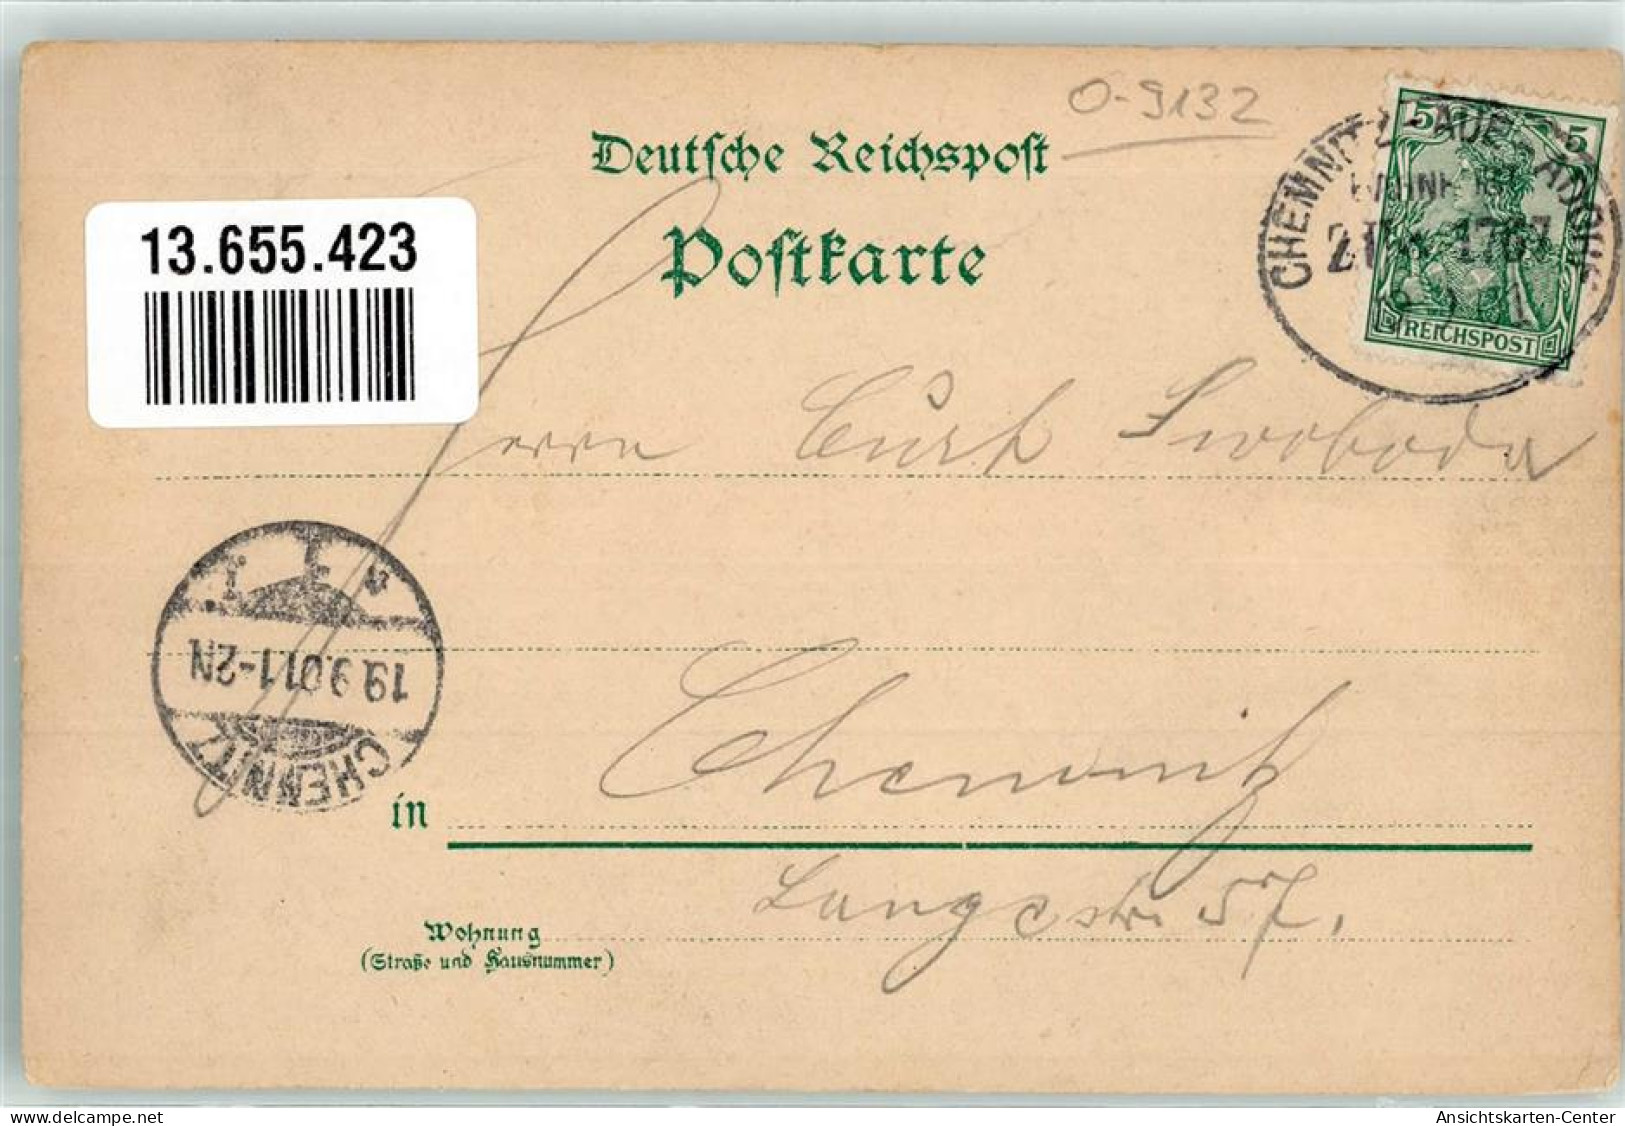 O-9132
Deutsche Reichspost
Postkarte
13.655.423
5 5
REICHSPOST
CHEMNITZ-AUE-ADORF
BAHNPOST
ZUG 1767
Herrn Curt Swoboda
19.9.01 1-2N
CHEMNITZ
in Chemnitz
Langestr. 57.
Wohnung
(Straße und Hausnummer)
delcampe.net
Ansichtskarten-Center